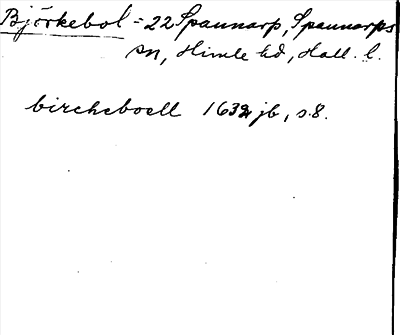 Björkebol = 22 Spannarp, Spannarps
sn, Himle hd, Hall. l.
bircheboell 1632 jb, s. 8.